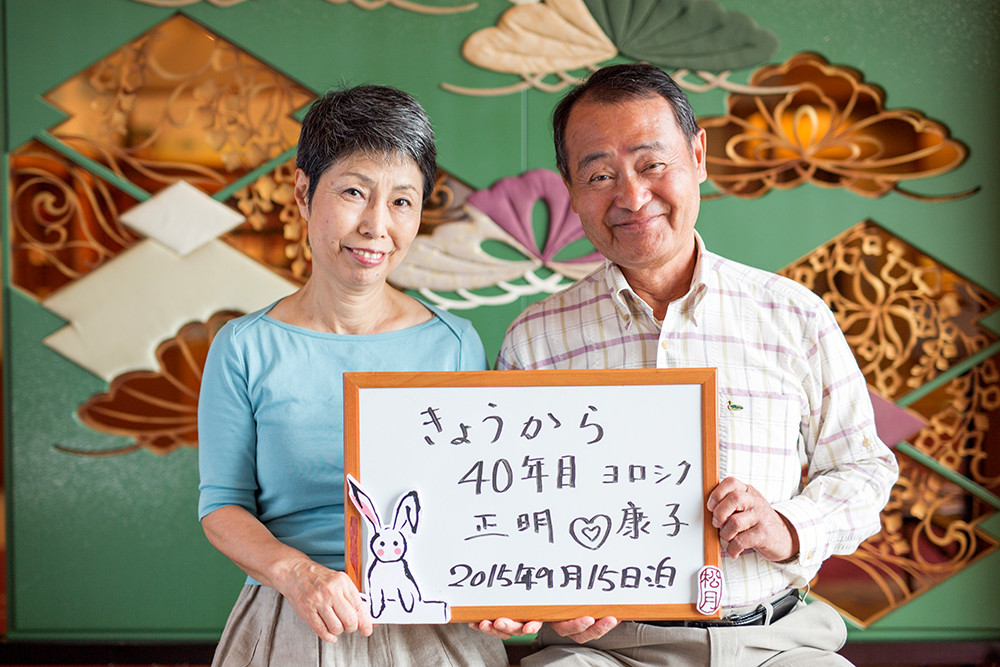 きょうから
40年目 ヨロシク
正明 ♡ 康子
2015年9月15日泊
松月